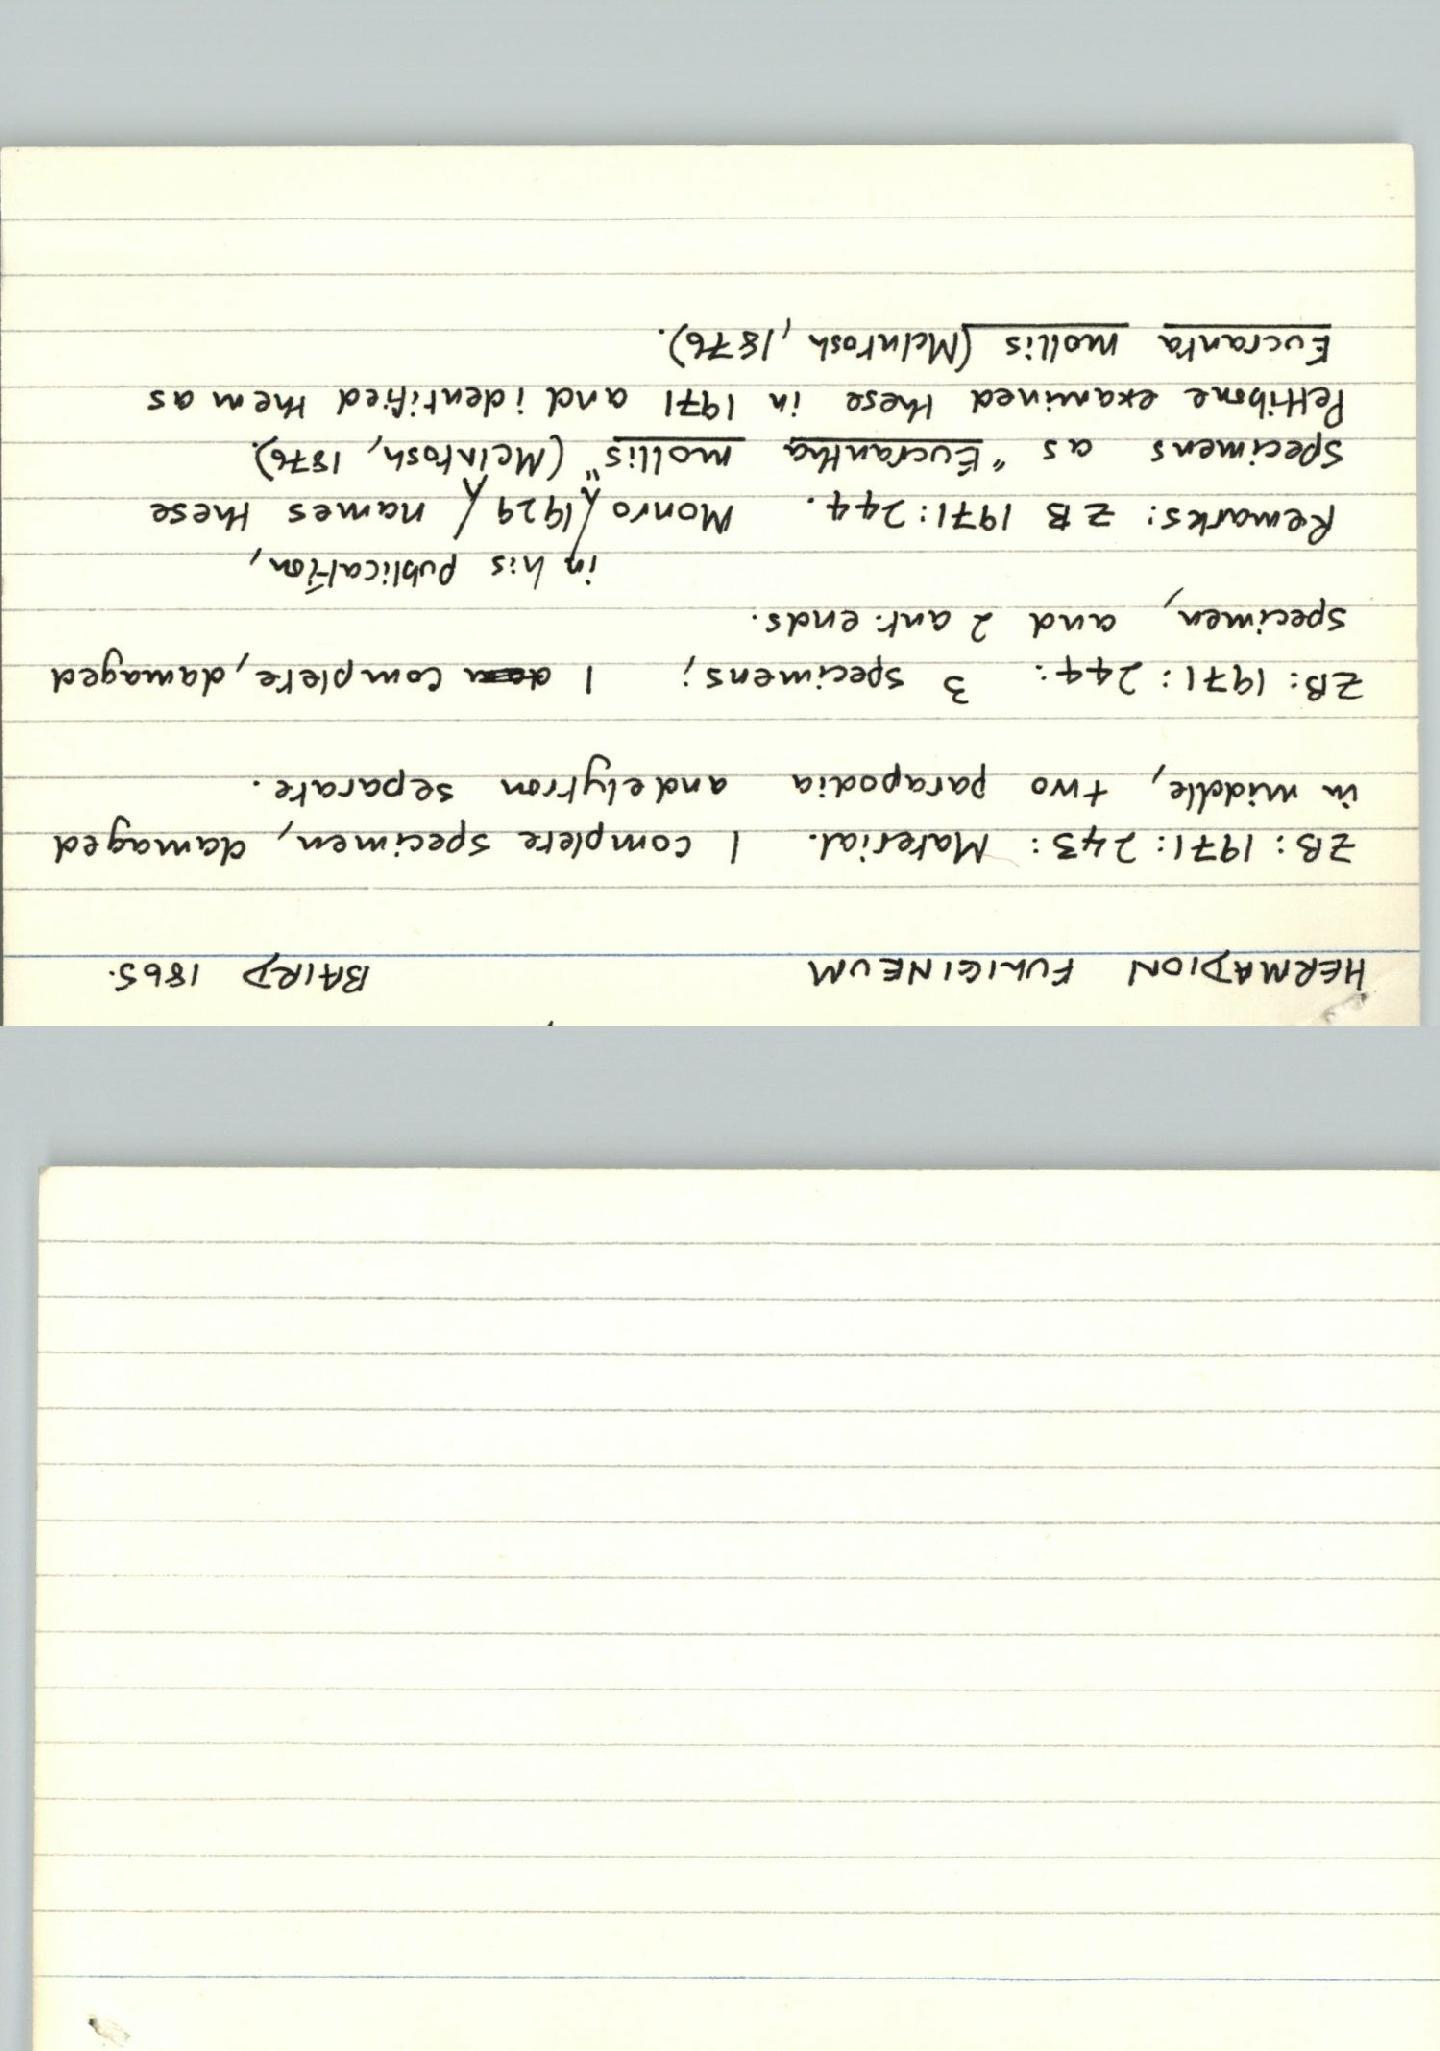 HERMADION FULIGINEUM BAIRD 1865.
ZB: 1971: 243: Material. 1 complete specimen, damaged
in middle, two parapodia and elytron separate.
ZB: 1971: 244: 3 specimens; 1 complete, damaged
specimen, and 2 ant. ends.
in his publication,
Remarks: ZB 1971: 244. Monro /1929/ names these
specimens as "Eucrantha mollis" (McIntosh, 1876).
Pettibone examined these in 1971 and identified them as
Eucranta mollis (McIntosh, 1876).